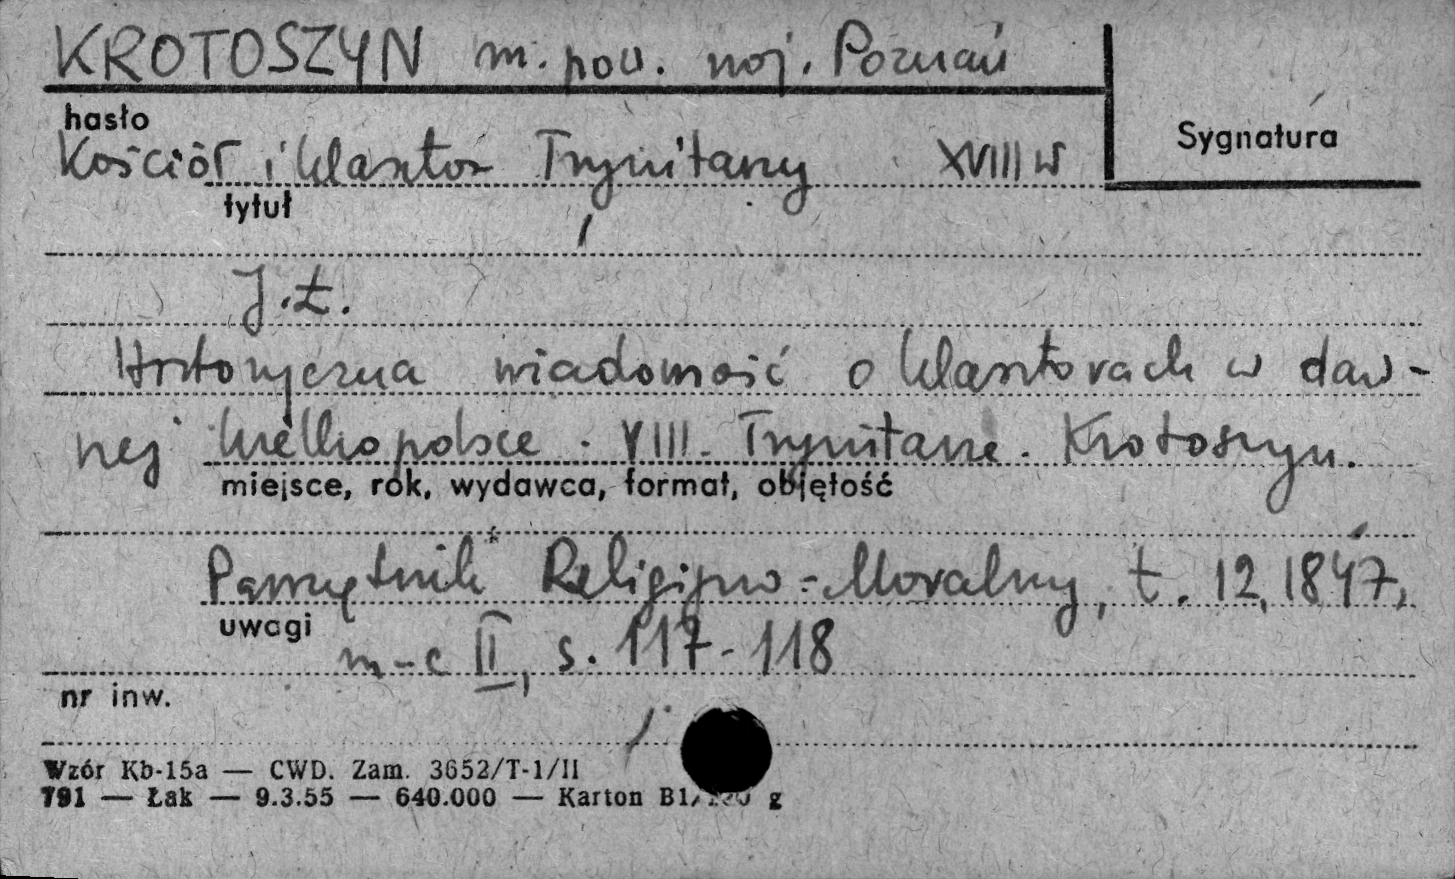 KROTOSZYN m. pow. woj. Poznań
hasło
Sygnatura
Kościół i klasztor Trynitarzy XVIII w
tytuł
J. Ł.
Historyczna wiadomość o klasztorach w daw-
nej Wielkopolsce. VIII. Trynitarze. Krotoszyn.
miejsce, rok, wydawca, format, objętość
Pamiętnik Religijno-Moralny, t. 12, 1847,
uwagi
m-c II, s. 117-118
nr inw.
Wzór Kb-15a — CWD. Zam. 3652/T-1/II
791 — Łak — 9.3.55 — 640.000 — Karton B1/ g